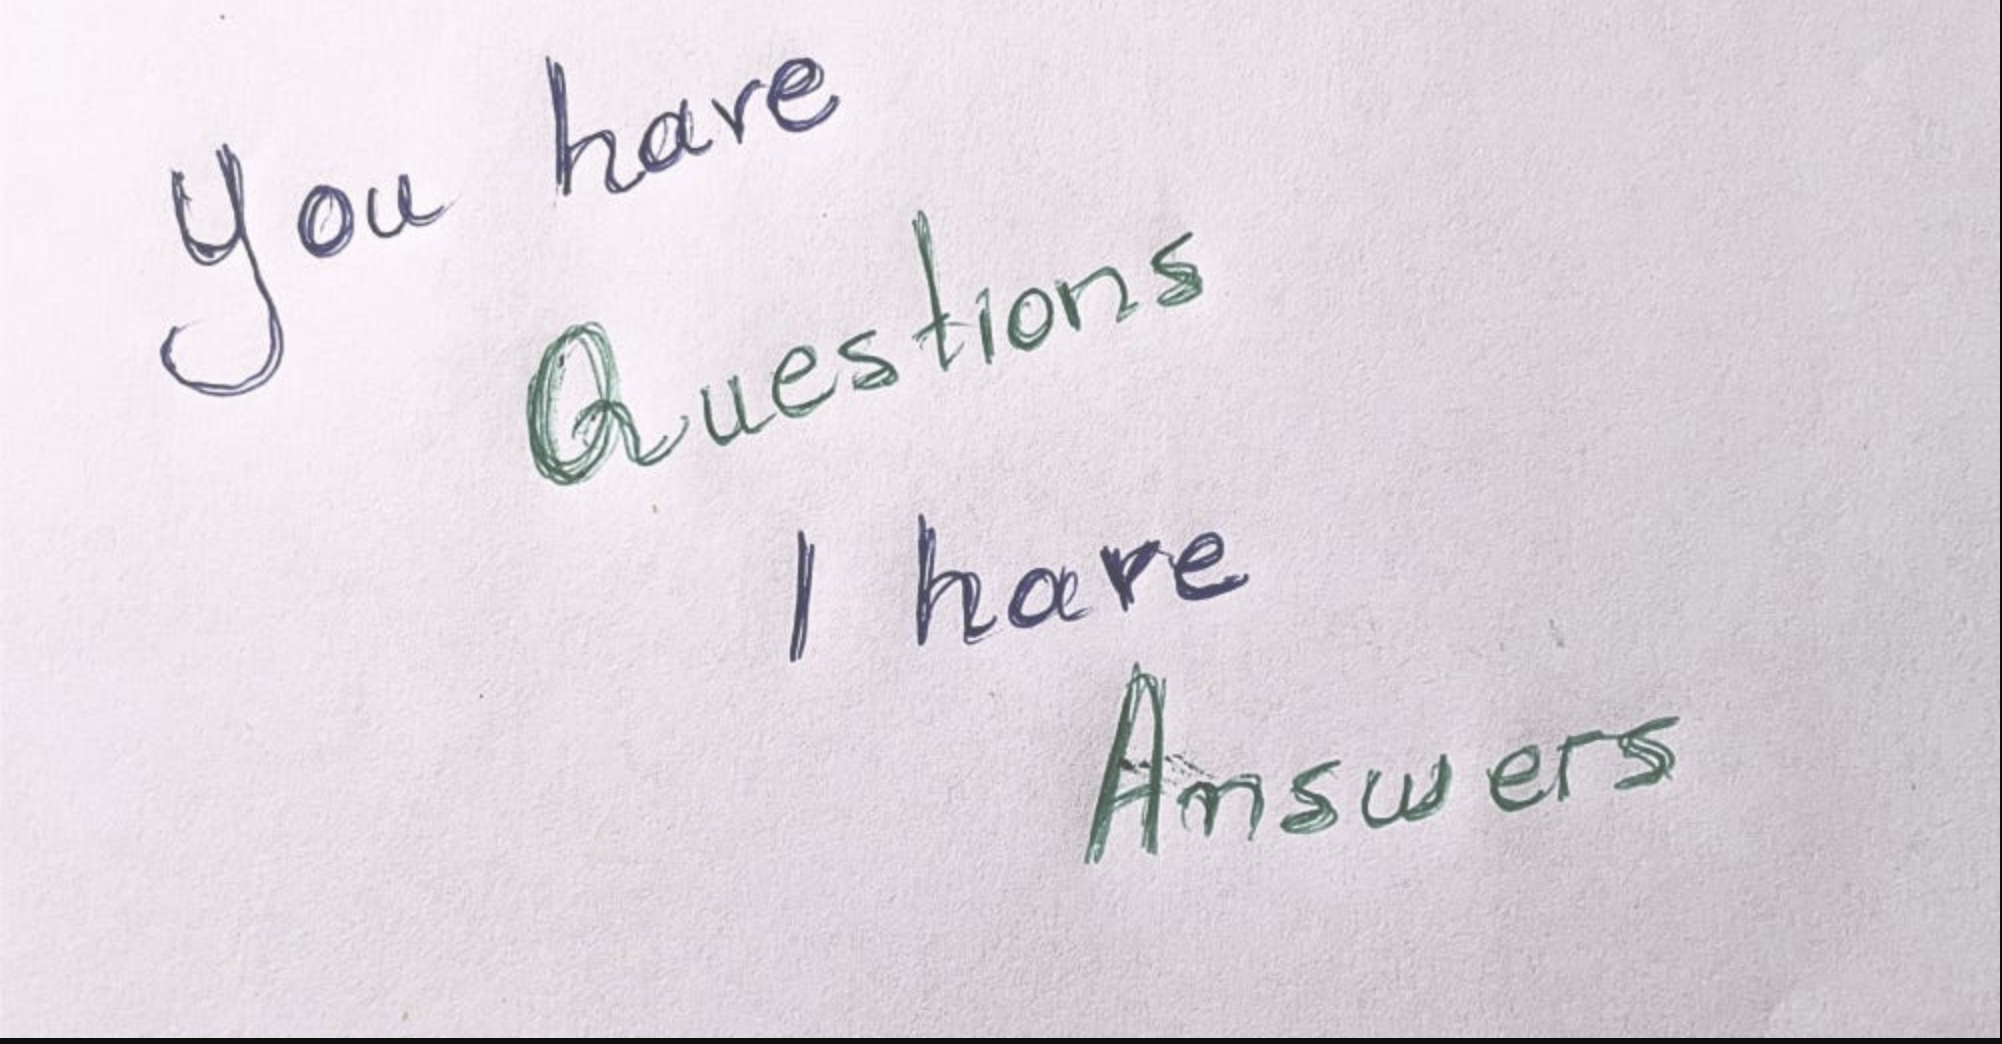 You have
Questions
I have
Answers